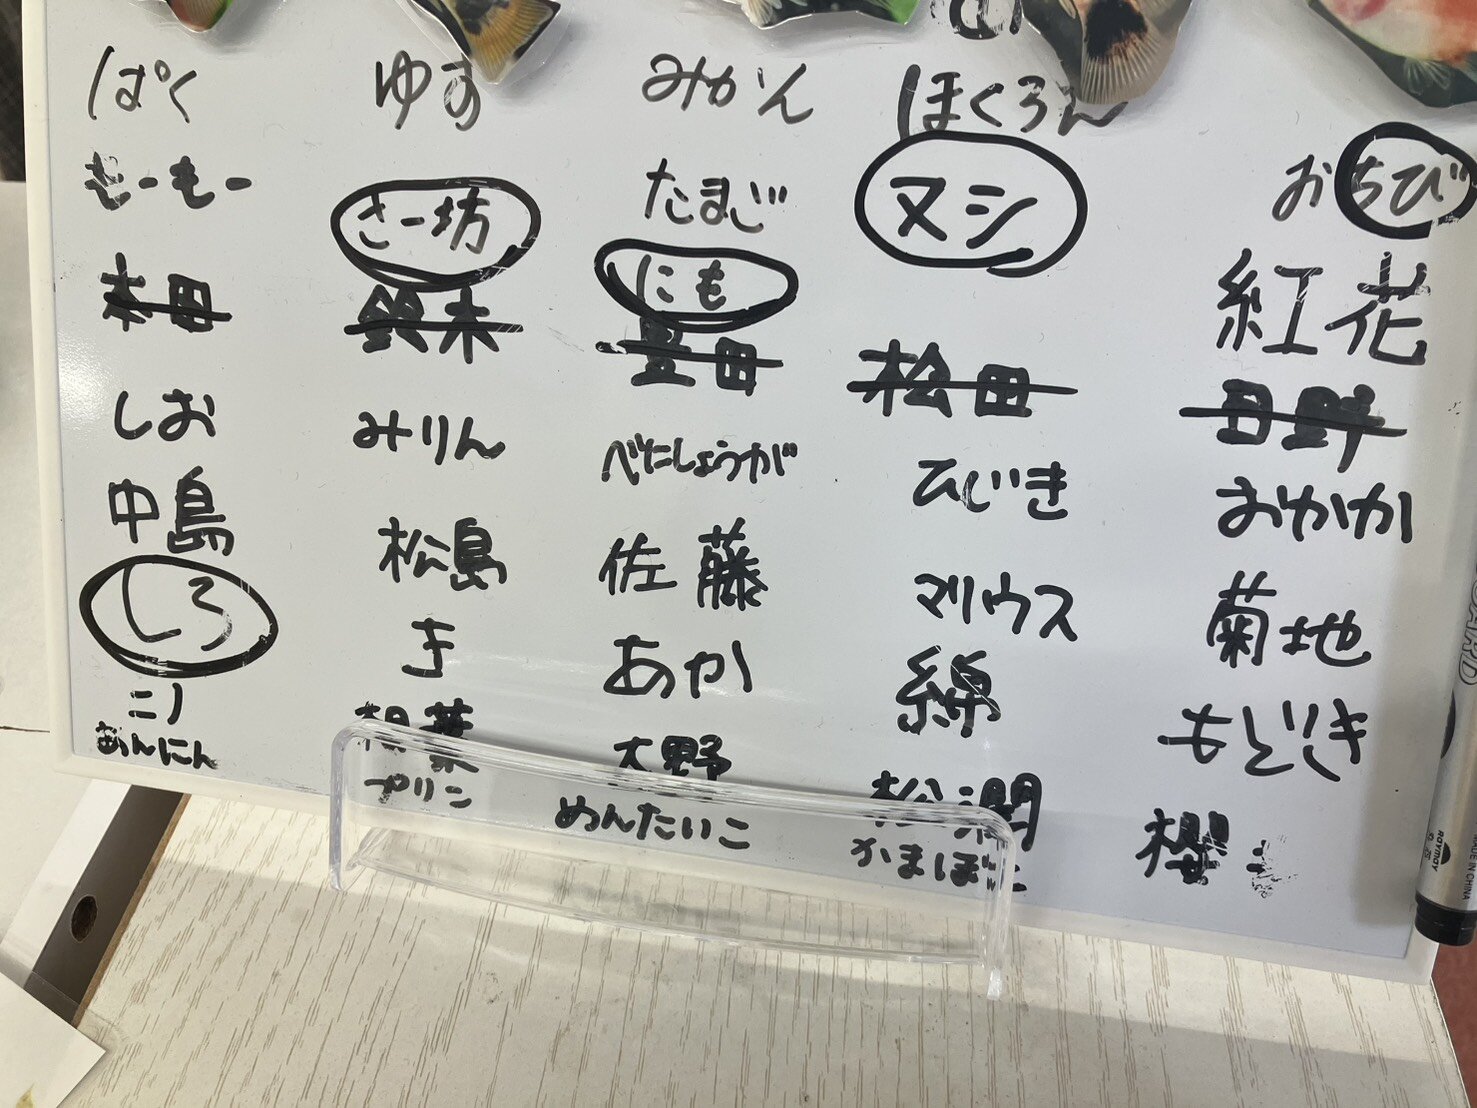 ぱく
もーもー
本田
しお
中島
しろ
ニノ
あんにん
ゆず
さー坊
鈴木
みりん
松島
き
相葉
プリン
みかん
たまご
にも
豊田
べにしょうが
佐藤
あか
大野
めんたいこ
ほくろん
ヌシ
松田
ひじき
マリウス
綿
松潤
かまぼこ
おちび
紅花
日野
おかか
菊地
もどき
櫻
MADE IN CHINA